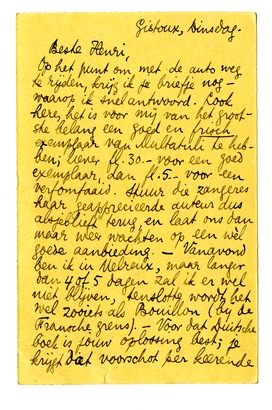 Gistoux, Dinsdag.
Beste Henri,
Op het punt om met de auto weg
te rijden, krijg ik je briefje nog –
waarop ik snel antwoord. Look
here, het is voor mij van het groot-
ste belang een goed en frisch
exemplaar van Multatuli te heb-
ben; liever fl. 30.- voor een goed
exemplaar, dan fl. 5.- voor een
verfomfaaid. Stuur die zangeres
haar geapprecieerde auteur dus
alsjeblieft terug, en laat ons dan
maar weer wachten op een wel
goede aanbieding. — Vanavond
ben ik in Melreux, maar langer
dan 4 of 5 dagen zal ik er wel
niet blijven, tenslotte wordt het
wel zooiets als Bouillon (bij de
Fransche grens). — Voor dat Duitsche
boek is jouw oplossing best; je
krijgt dat voorschot per keerende